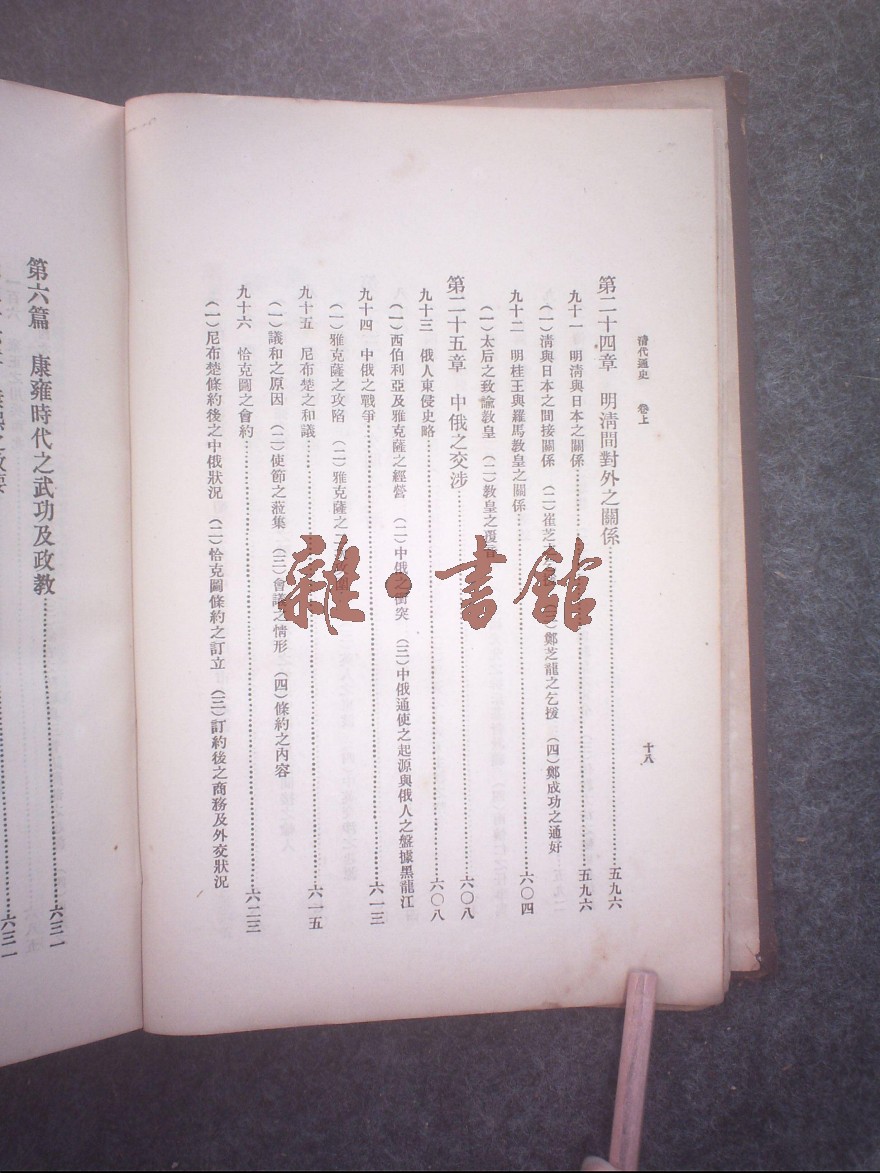 清代通史 卷上
十八
第二十四章 明清間對外之關係……五九六
九十一 明清與日本之關係……五九六
(一)清與日本之間接關係 (二)崔芝 (三)鄭芝龍之乞援 (四)鄭成功之通好
九十二 明桂王與羅馬教皇之關係……六〇四
(一)太后之致諭教皇 (二)教皇之覆
第二十五章 中俄之交涉……六〇八
九十三 俄人東侵史略……六〇八
(一)西伯利亞及雅克薩之經營 (二)中俄之衝突 (三)中俄通使之起源與俄人之盤據黑龍江
九十四 中俄之戰爭……六一三
(一)雅克薩之攻陷 (二)雅克薩之
九十五 尼布楚之和議……六一五
(一)議和之原因 (二)使節之蒞集 (三)會議之情形 (四)條約之內容
九十六 恰克圖之會約……六二三
(一)尼布楚條約後之中俄狀況 (二)恰克圖條約之訂立 (三)訂約後之商務及外交狀況
第六篇 康雍時代之武功及政教……六三一
六三一
雜·書館